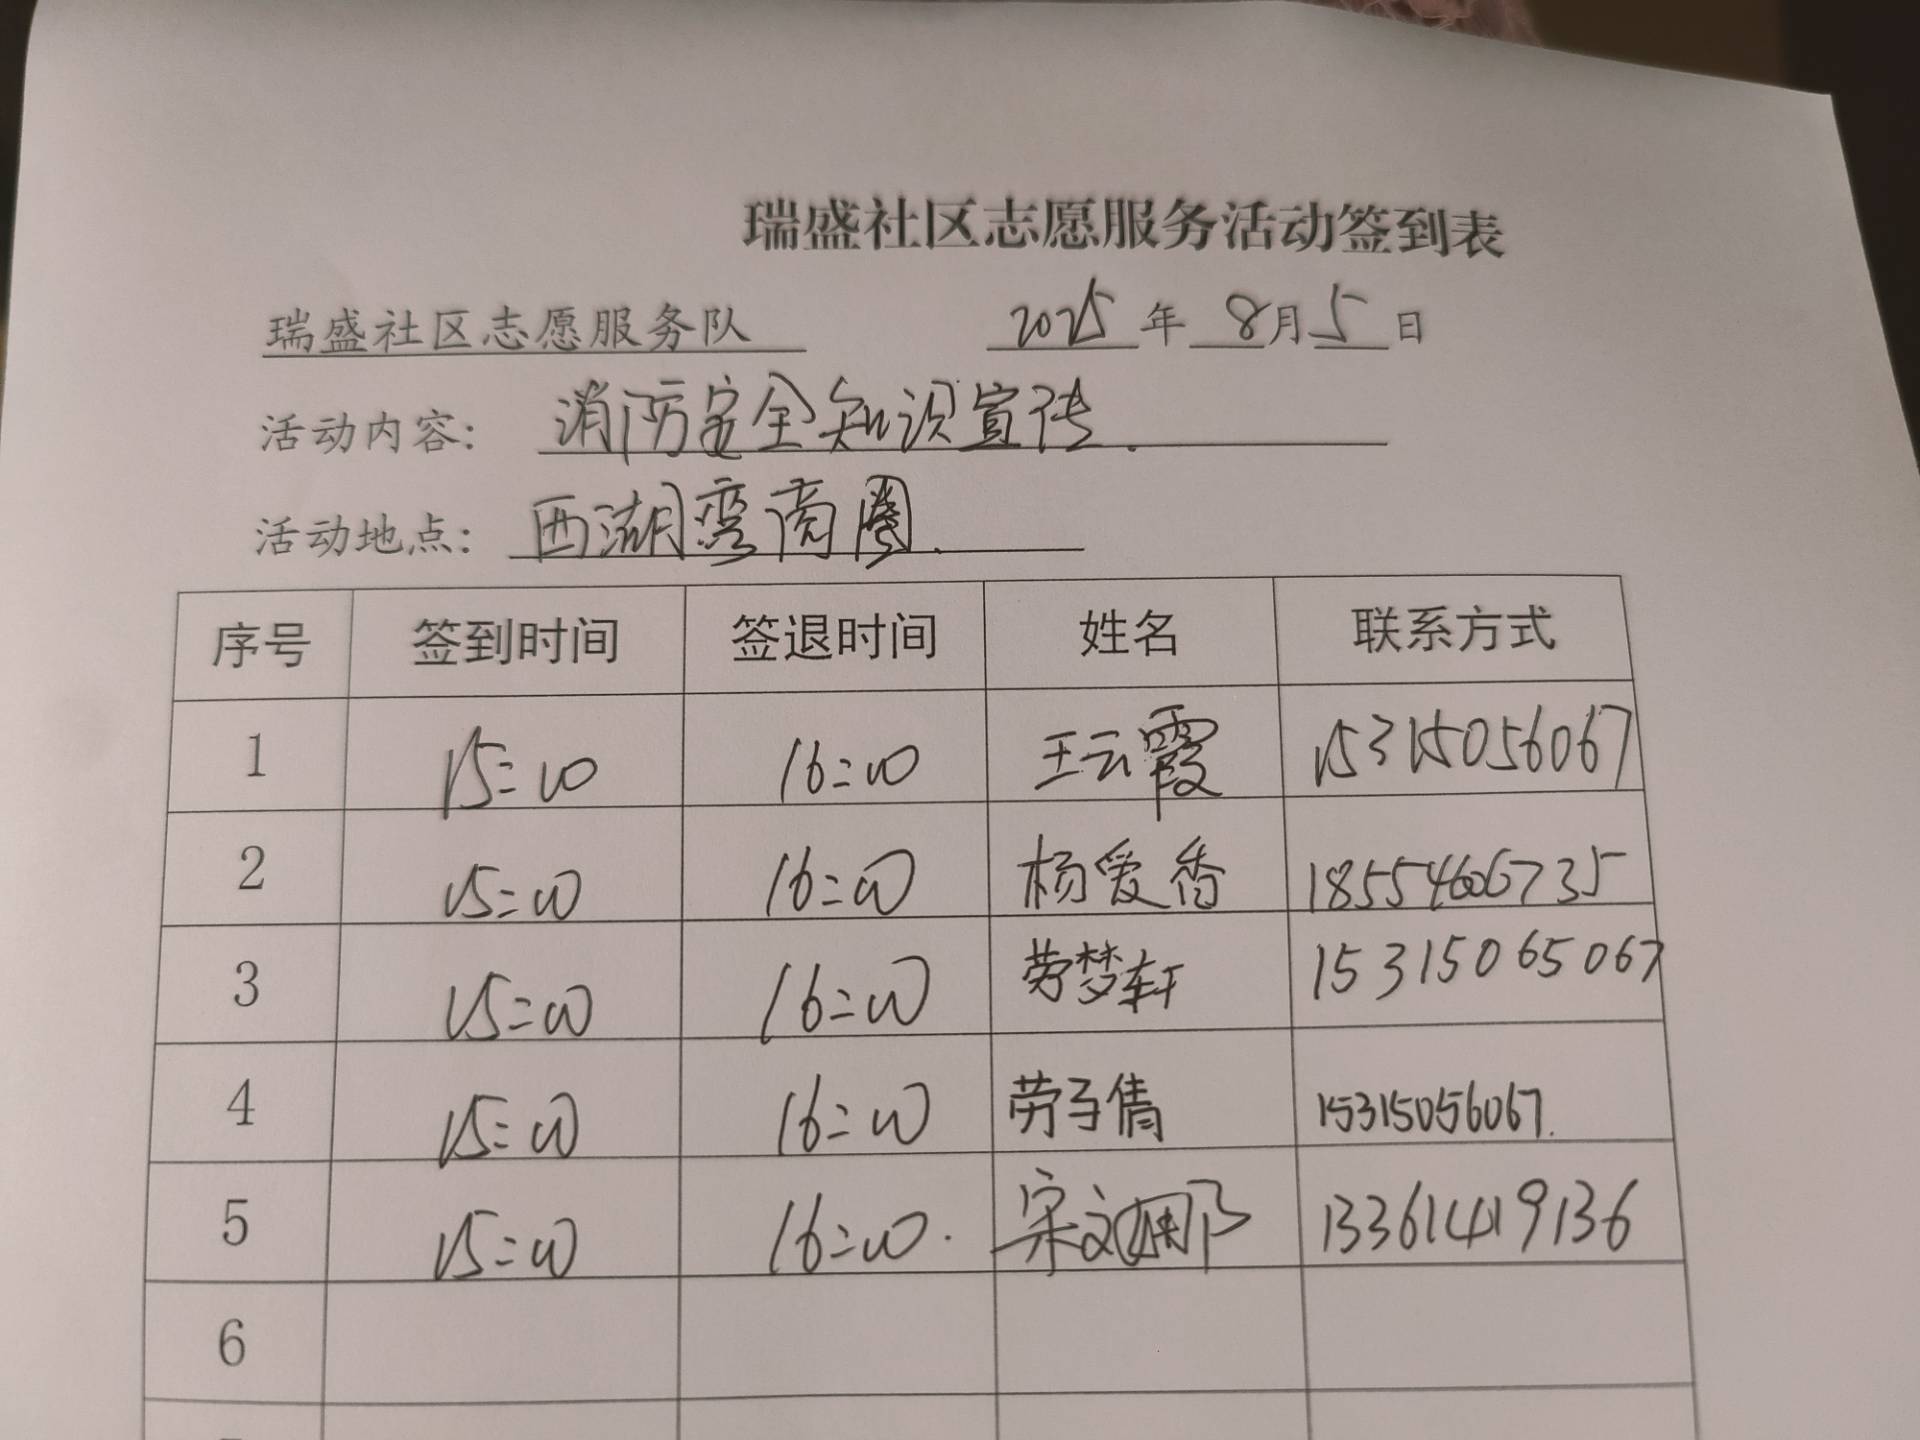 瑞盛社区志愿服务活动签到表
瑞盛社区志愿服务队 2025 年 8 月 5 日
活动内容: 消防安全知识宣传.
活动地点: 西湖湾商圈.
序号 签到时间 签退时间 姓名 联系方式
1 15:00 16:00 王云霞 15315056067
2 15:00 16:00 杨爱香 18554606735
3 15:00 16:00 劳梦轩 15315065067
4 15:00 16:00 劳子倩 15315056067.
5 15:00 16:00. 宋文娜 13361419136
6